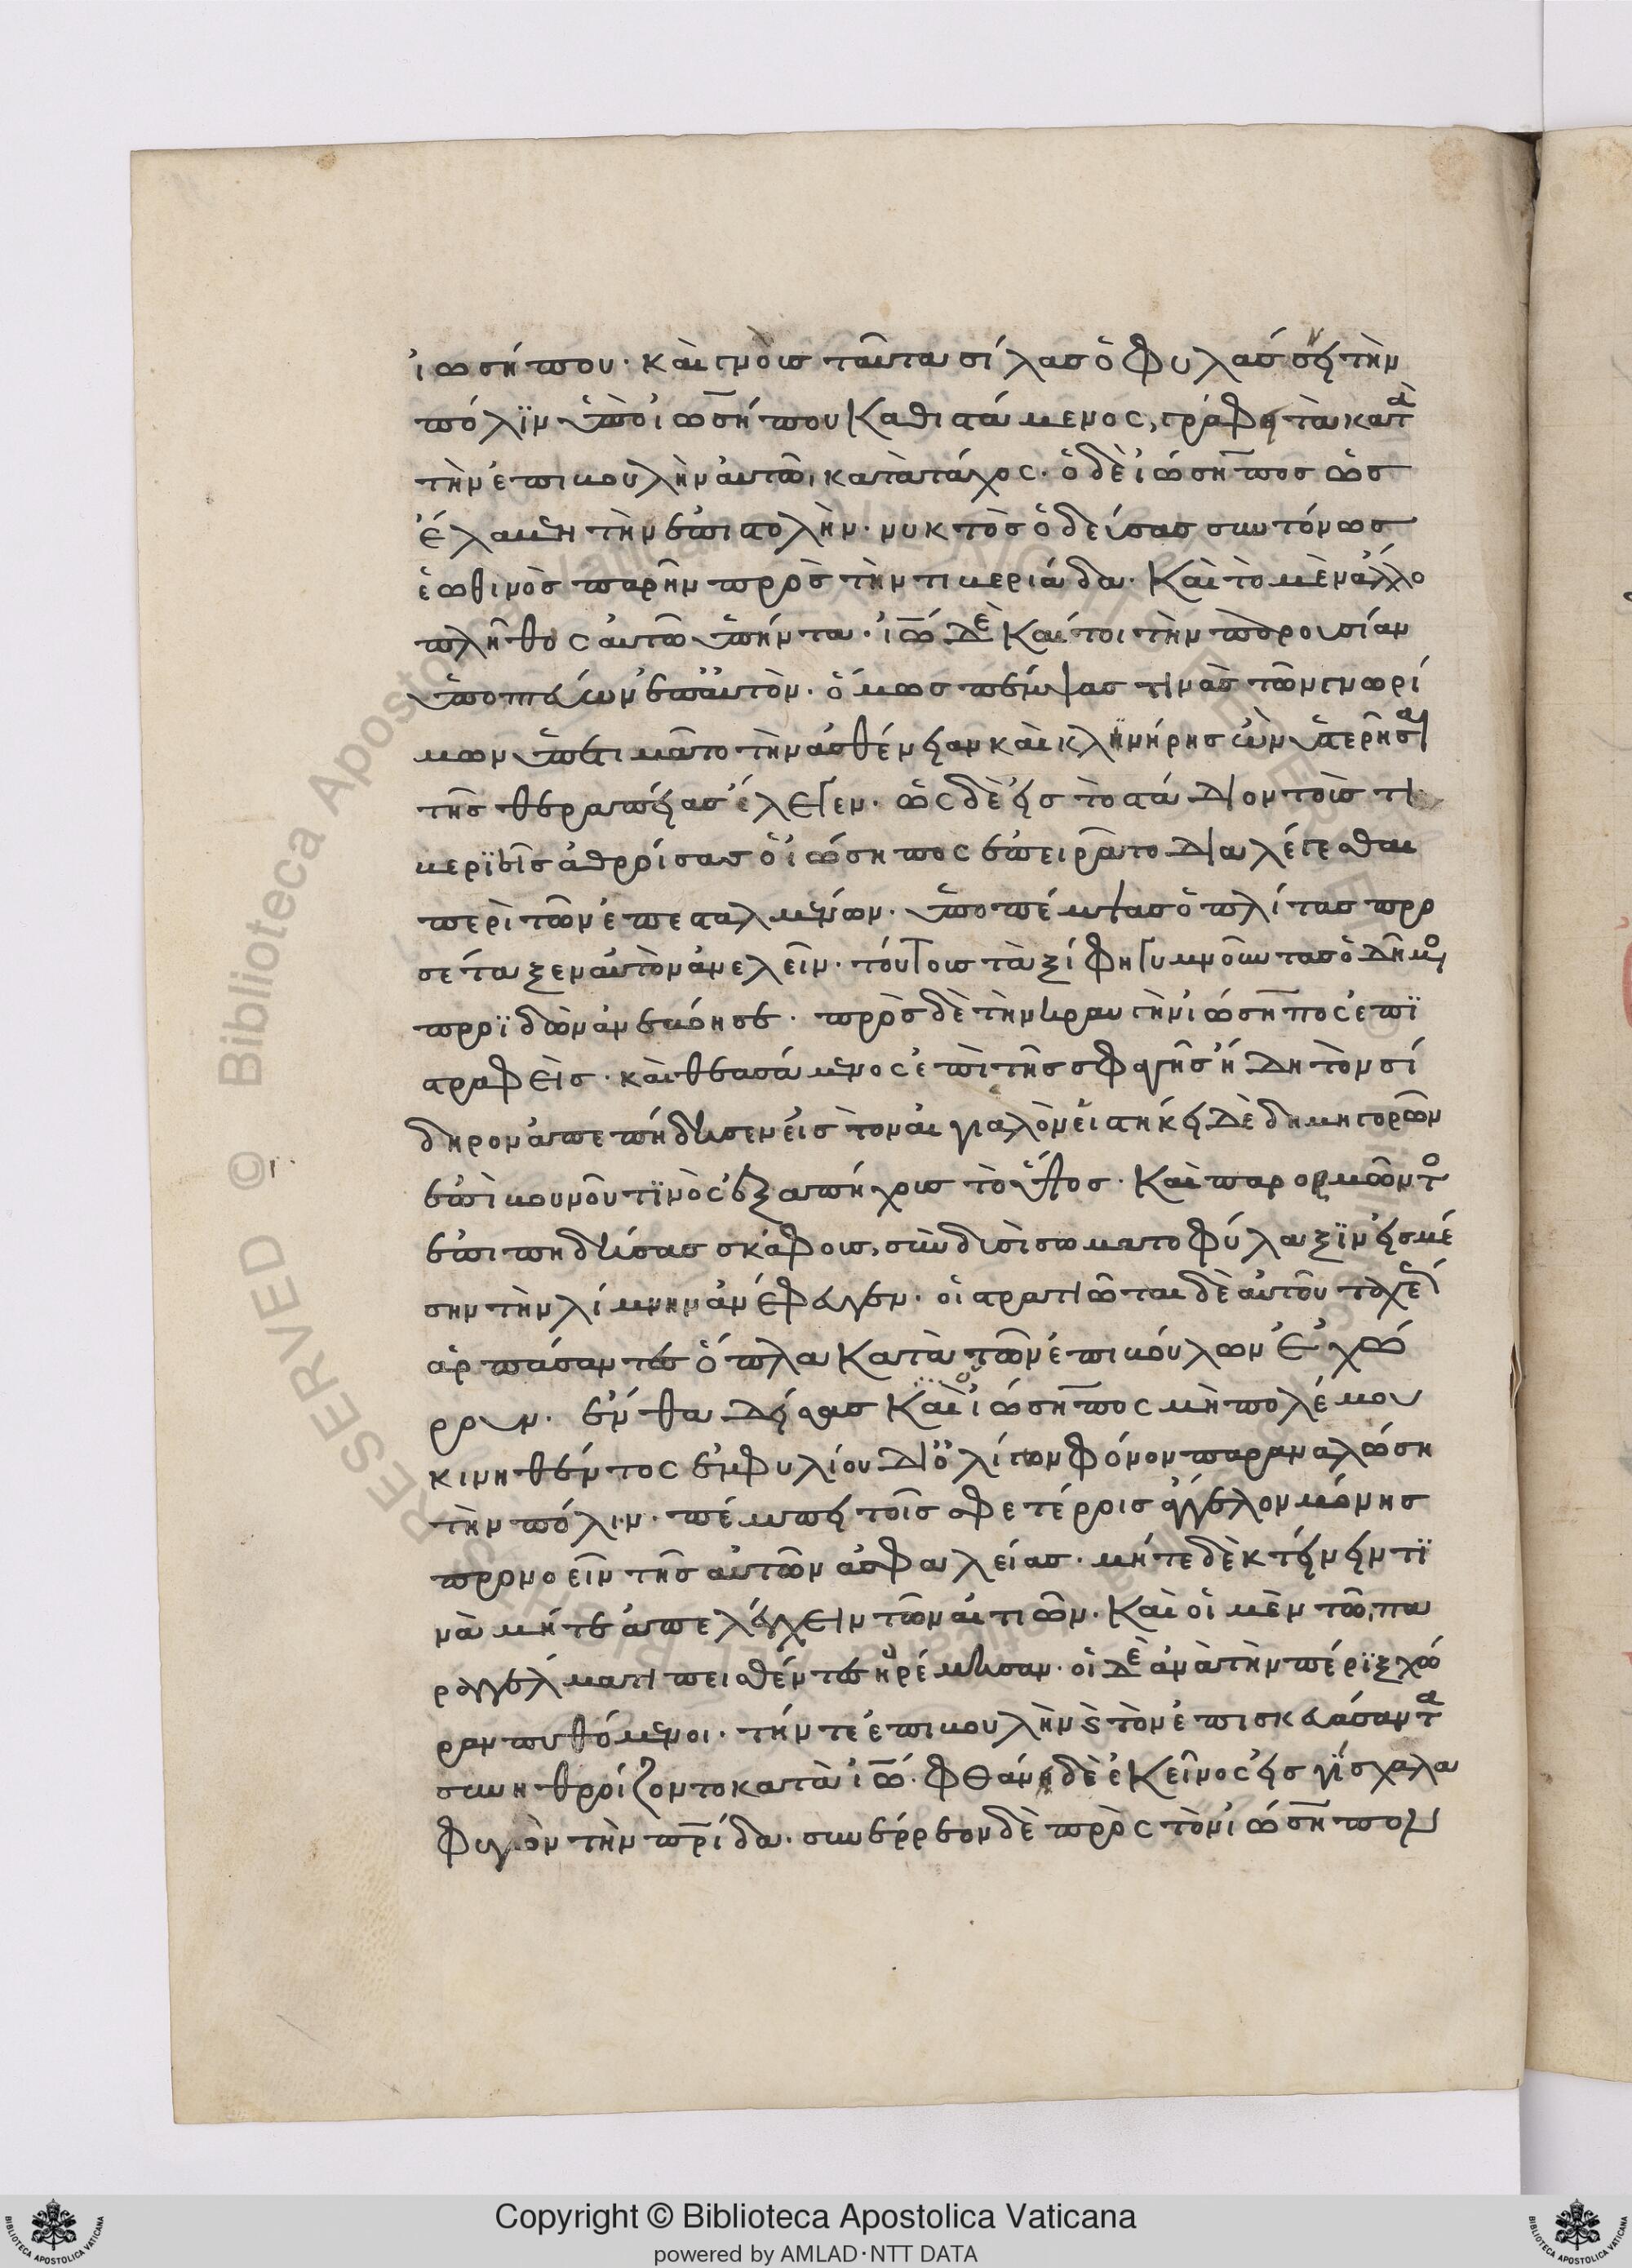 ἰωσήπου· καὶ γνοὺς ταῦτα σίλας ὁ φυλάσσειν τὴν
πόλϊν ὑπὸ ἰωσήπου καθιστάμενος, γράφει τὰ κατὰ
τὴν ἐπιβουλὴν αὐτῶ, κατὰ τάχος· ὁ δὲ ἰώσηπος ὡς
ἔλαβε τὴν ἐπιστολὴν· νυκτὸς ὁδεύσας συντόνως
ἑωθινὸς παρῆν πρὸς τὴν τιβεριάδα· Καὶ τὸ μὲν ἄλλο
πλῆθος αὐτῶ ὑπήντα· ἰω δὲ Καίτοι τὴν παρουσίαν
ὑποπτεύων ἐπ' αὐτὸν· ὅμως πέμψας τινὰς τῶν γνωρί
μων ὑπεκρίνατο τὴν ἀσθένειαν καὶ κλϊνήρης ὢν ὑστερῆσαι
τῆς θεραπείας ἔλεγεν· ὡς δὲ εἰς τὸ στάδιον τοὺς τι
βερϊεῖς ἀθροίσας ὁ ἰώσηπος ἐπειρᾶτο διαλέγεσθαι
περὶ τῶν ἐπεσταλμένων· ὑποπέμψας ὁπλίτας προ
σέταξεν αὐτὸν ἀνελεῖν· τούτους τὰ ξίφη γυμνοῦντας ὁ δῆμος
προϊδὼν ἀνεβόησε· πρὸς δὲ τὴν βοὴν ἰώσηπος ἐπϊ
στραφεὶς· καὶ θεασάμενος ἐπὶ τῆς σφαγῆς ἤδη τὸν σί
δηρον ἀπεπήδησεν εἰς τὸν αἰγιαλὸν εἱστήκει δὲ δημηγορῶν
ἐπὶ βουνοῦ τϊνὸς ἑξαπήχους τὸ ὕψος· Καὶ παρορμῶντος
ἐπιπηδήσας σκάφους, σὺν δυσὶ σωματοφύλαξϊν εἰς μέ
σην τὴν λίμνην ἀνέφευγεν· οἱ στρατιῶται δὲ αὐτοῦ ταχέως
ἁρπάσαντες ὅπλα Κατὰ τῶν ἐπιβούλων ἐχώ
ρουν· ἔνθα δείσας Καὶ ἰώσηπος μὴ πολέμου
κινηθέντος ἐμφυλίου δι' ὀλίγων φθόνον παραναλώση
τὴν πόλιν· πέμπει τοῖς σφετέροις ἄγγελον μόνης
προνοεῖν τῆς αὐτῶν ἀσφαλείας· μήτε δὲ κτείνειν τϊ
νὰ μήτε ἀπελέγχειν τῶν αἰτιῶν· Καὶ οἱ μὲν τῶ, πα
ραγγέλματι πεισθέντες ἠρέμησαν· οἱ δὲ ἀνὰ τὴν πέριξ χώ
ραν πυθόμενοι· τήν τε ἐπιβουλὴν ϗ τὸν ἐπισκευάσαντα
συνηθροίζοντο κατὰ ἰω· φθάνει δὲ ἐκεῖνος εἰς γΐσχαλα
φυγὼν τὴν πρίδα· συνέρρεον δὲ πρὸς τὸν ἰώσηπον